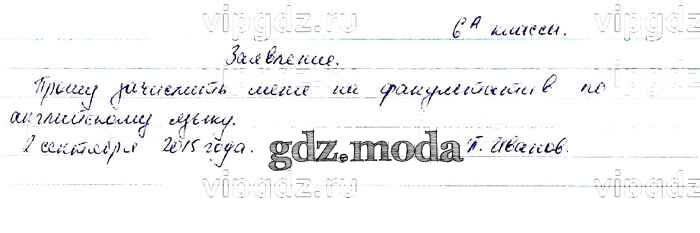 vipgdz.ru vipgdz.ru vipgdz.ru
6А класса.
Заявление.
Прошу зачислить меня на факультатив по
английскому языку.
2 сентября 2015 года. П. Иванов.
gdz.moda
vipgdz.ru vipgdz.ru vipgdz.ru